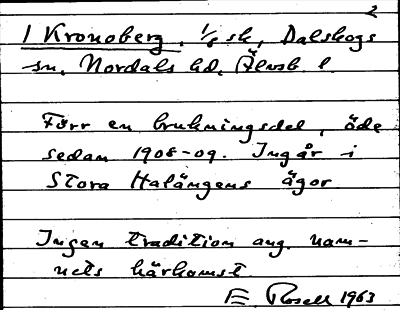 2
1 Kronoberg, 1/8 sk, Dalskogs
sn, Nordals hd, Älvsb l.
Förr en brukningsdel, öde
sedan 1908-09. Ingår i
Stora Halängens ägor
Ingen tradition ang. nam-
nets härkomst
E. Rosell 1963